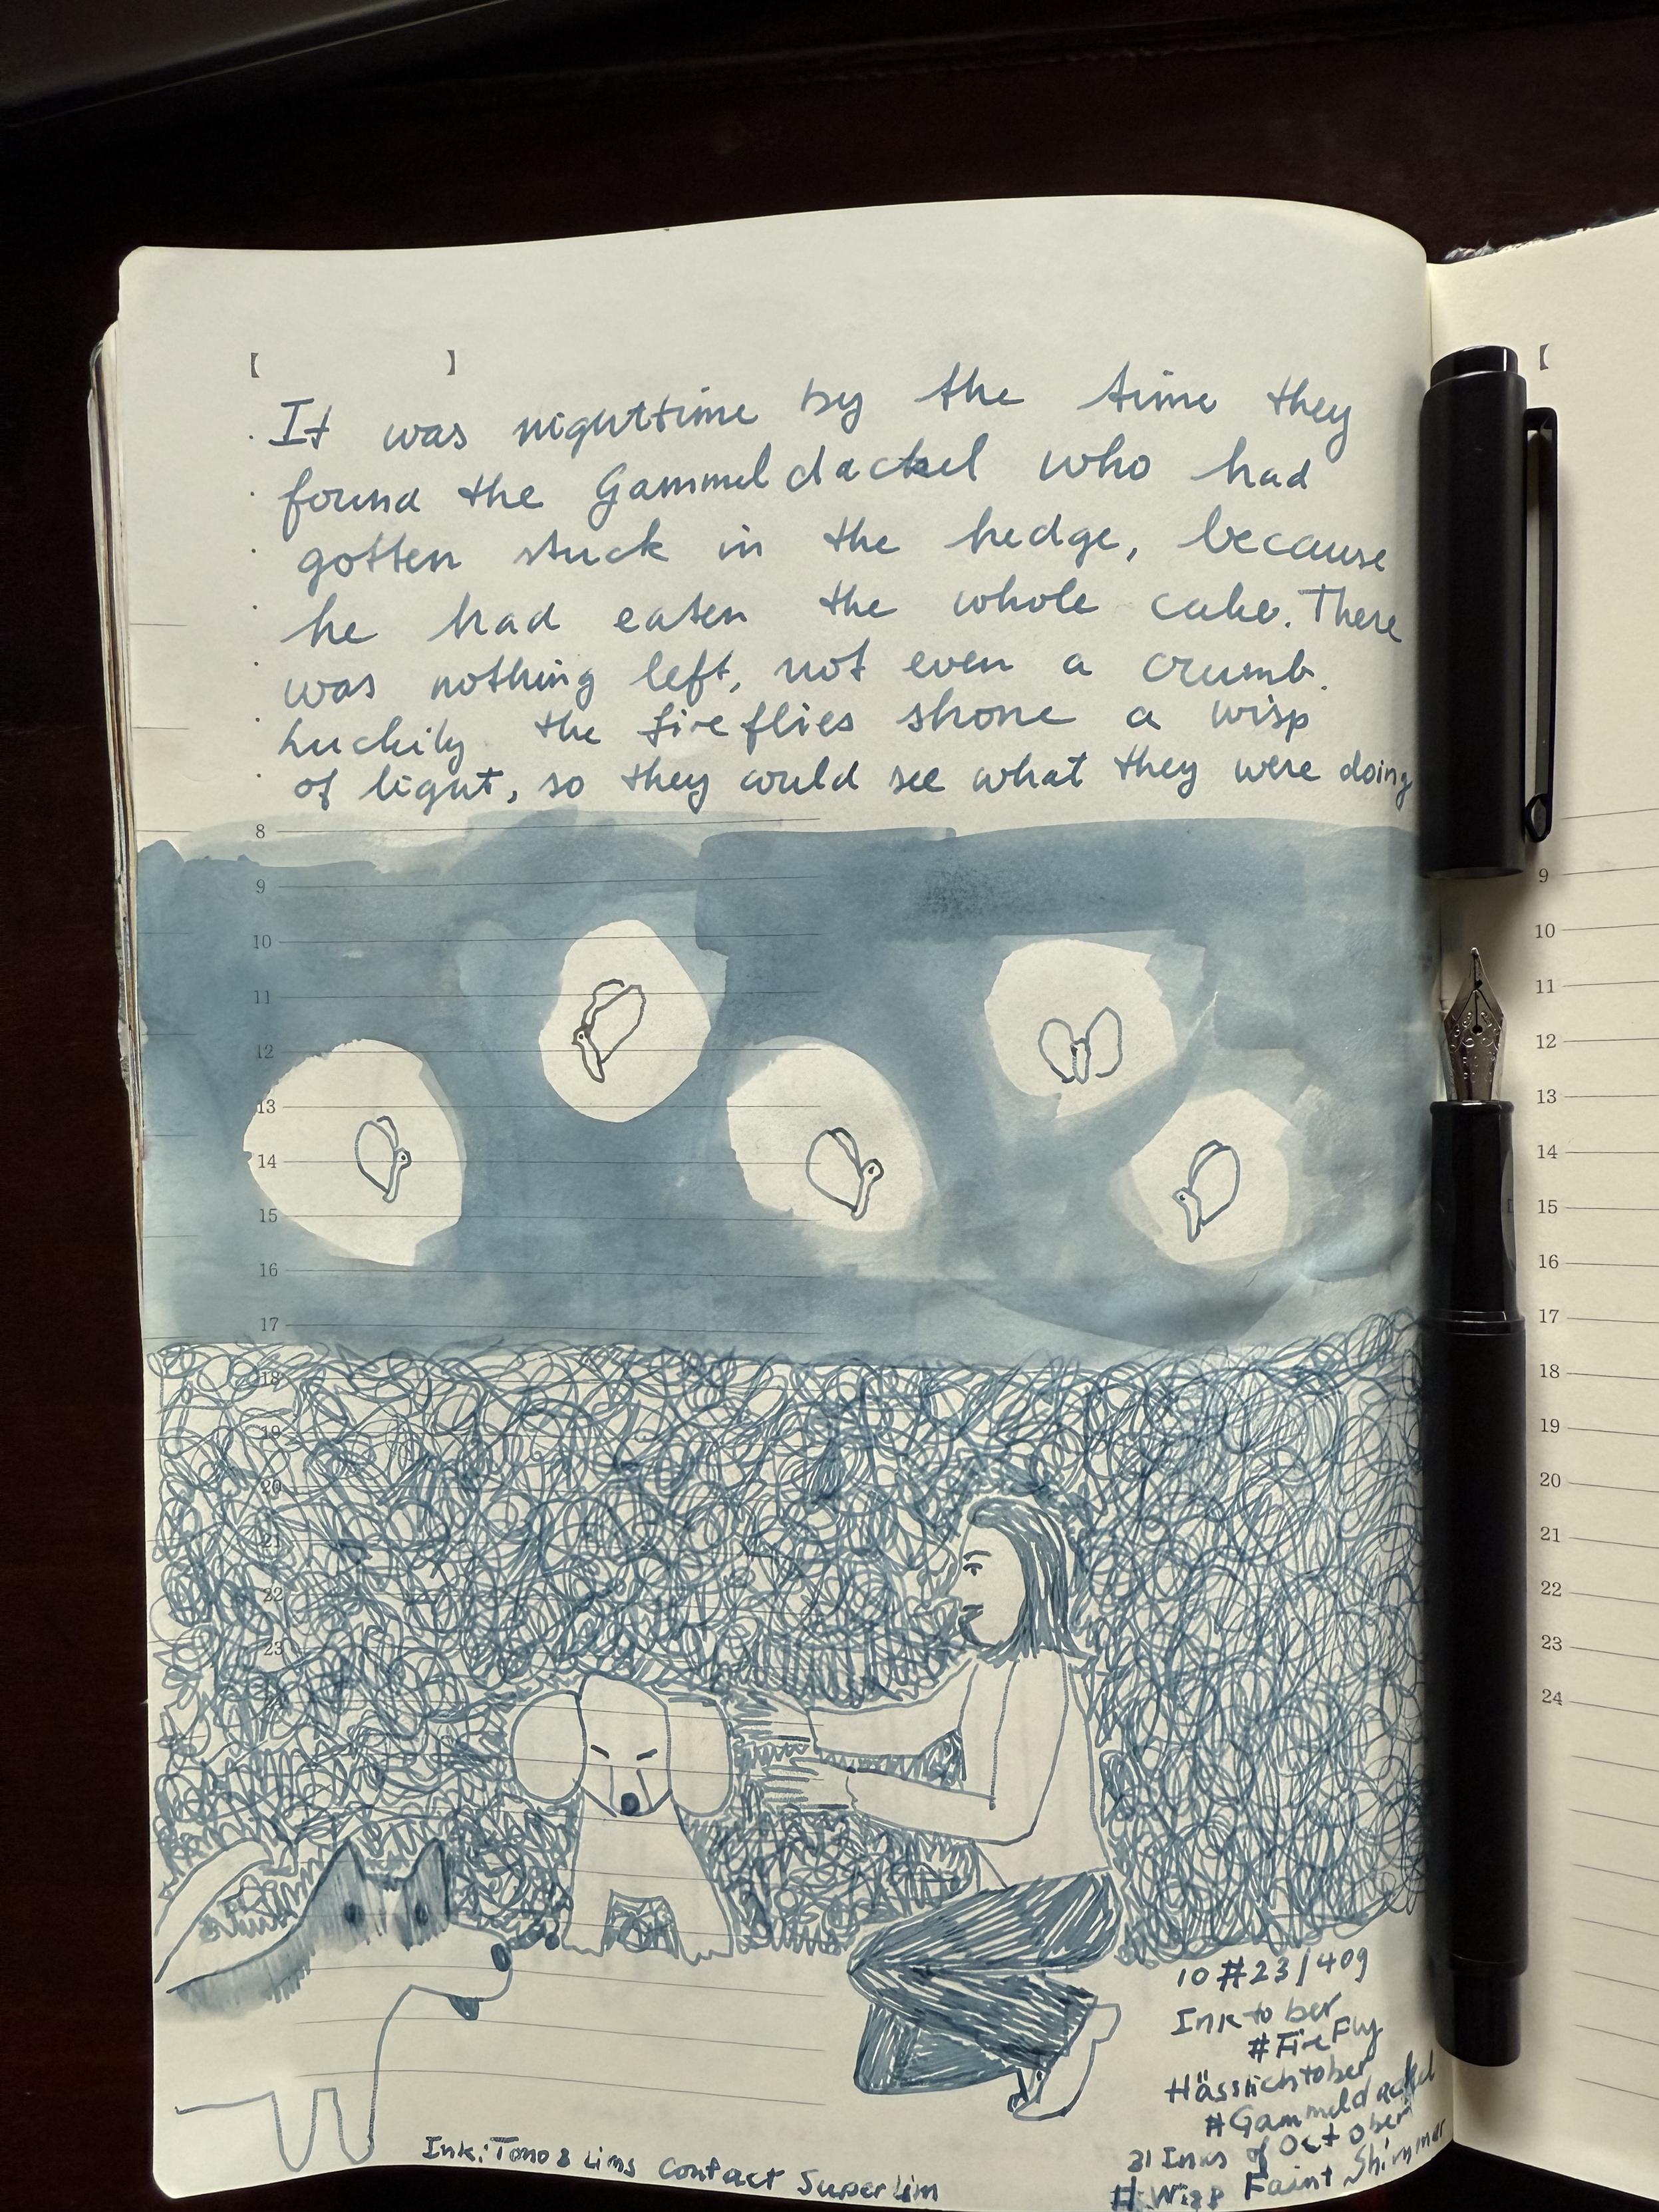 【 】
It was nighttime by the time they
found the Gammeldackel who had
gotten stuck in the hedge, because
he had eaten the whole cake. There
was nothing left, not even a crumb.
Luckily the fireflies shone a wisp
of light, so they could see what they were doing
8
9
10
11
12
13
14
15
16
17
18
19
20
21
22
23
10#23/409
Inktober
#FireFly
Hässlichtober
#Gammeldackel
31 Inks of October
#Wisp Faint Shimmer
Ink: Tono & Lims Contact Superlim
【
9
10
11
12
13
14
15
16
17
18
19
20
21
22
23
24